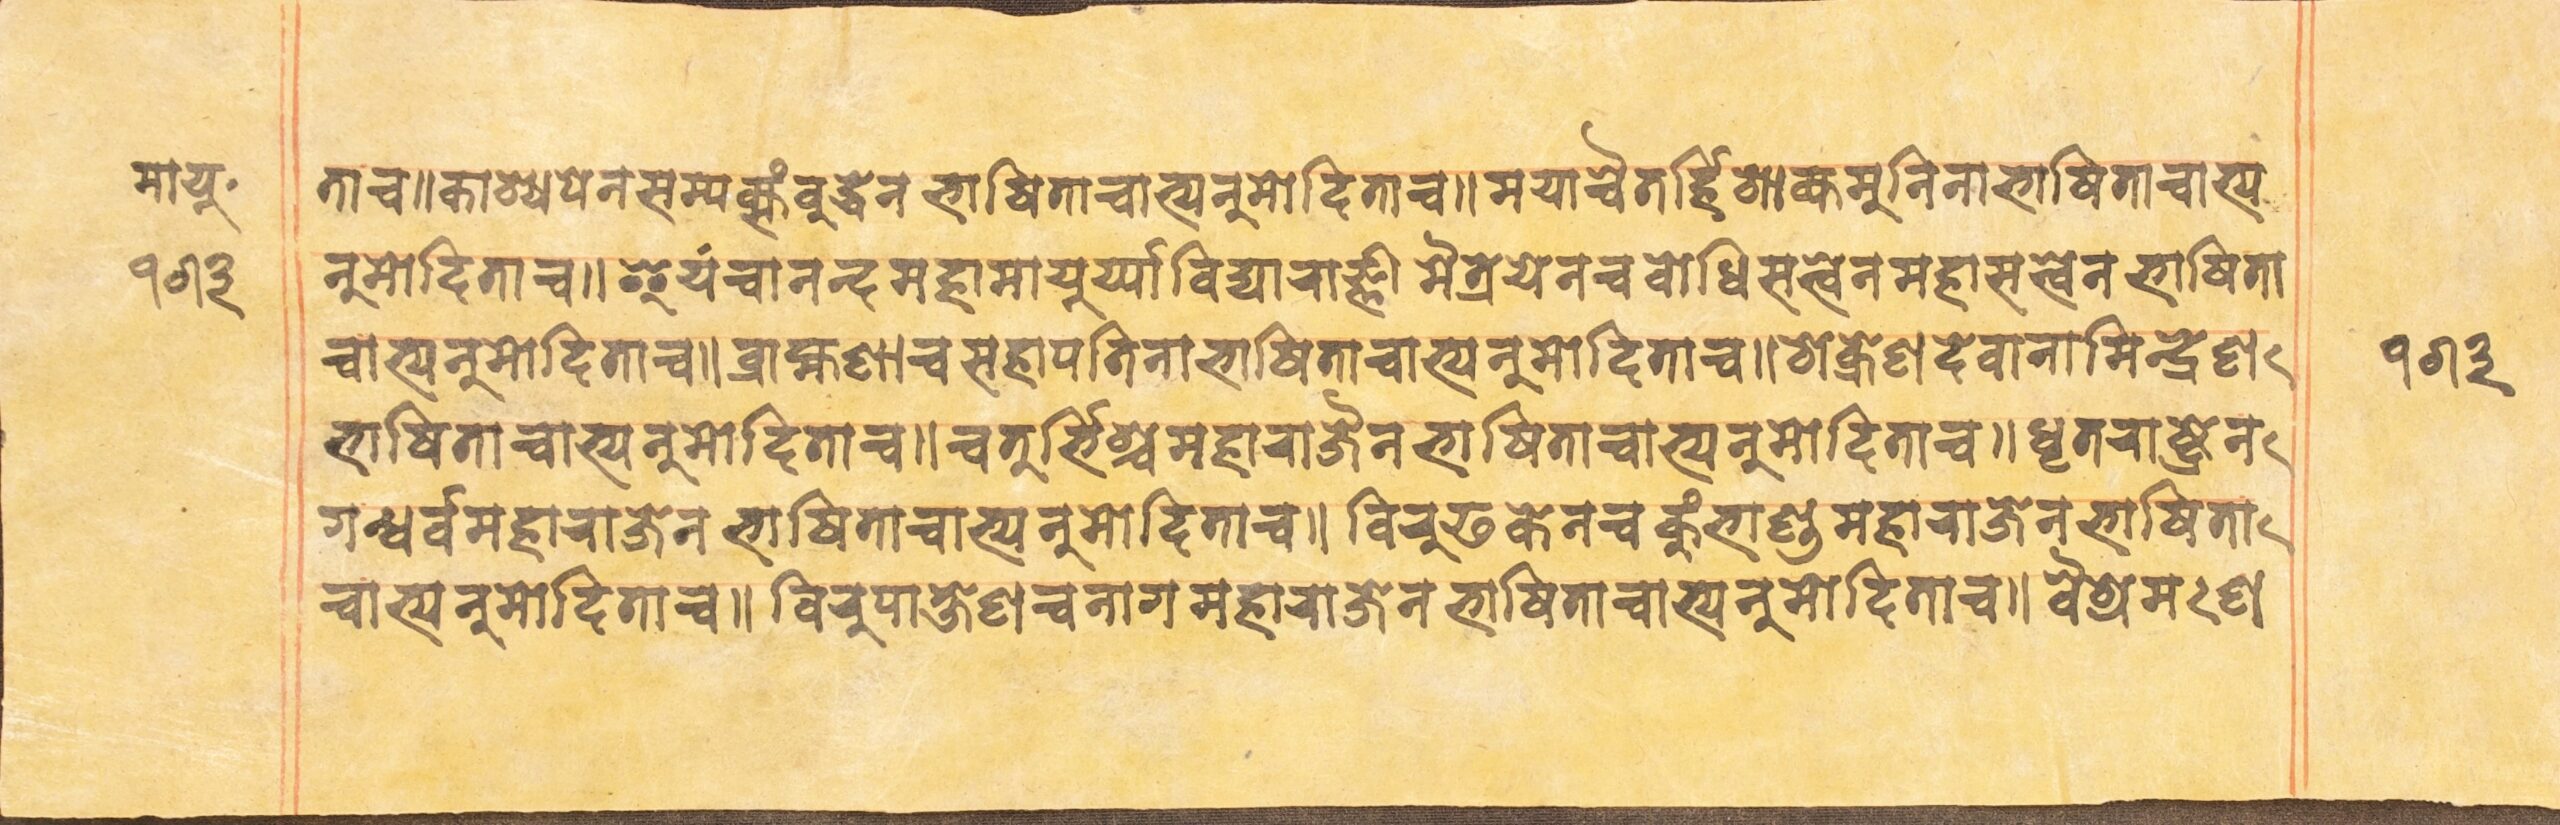 मायु॰
१७३
ताच॥काश्यपेनसम्यक्संबुद्धेन भाषिताचाभ्यनुमोदिताच॥मयाचैतर्हिशाक्यमुनिनाभाषिताचाभ्य
नुमोदिताच॥इयंचानन्दमहामायुर्य्याविद्याराज्ञी मैत्रेयेनचवोधिसत्त्वेनमहासत्त्वेन भाषिता
चाभ्यनुमोदिताच॥व्राह्मणाचसहापतिनाभाषिताचाभ्यनुमोदिताच॥शक्रेणदेवानामिन्द्रेण
भाषिताचाभ्यनुमोदिताच॥चतुर्भिश्चमहाराजैनभाषिताचाभ्यनुमोदिताच॥धृतराष्ट्रेन
गन्धर्वमहाराजेन भाषिताचाभ्यनुमोदिताच॥ विरुढकेनचकुंभाण्डमहाराजेनभाषिता
चाभ्यनुमोदिताच॥ विरुपाक्षेणचनागमहाराजेन भाषिताचाभ्यनुमोदिताच॥ वैश्रमण
१७३